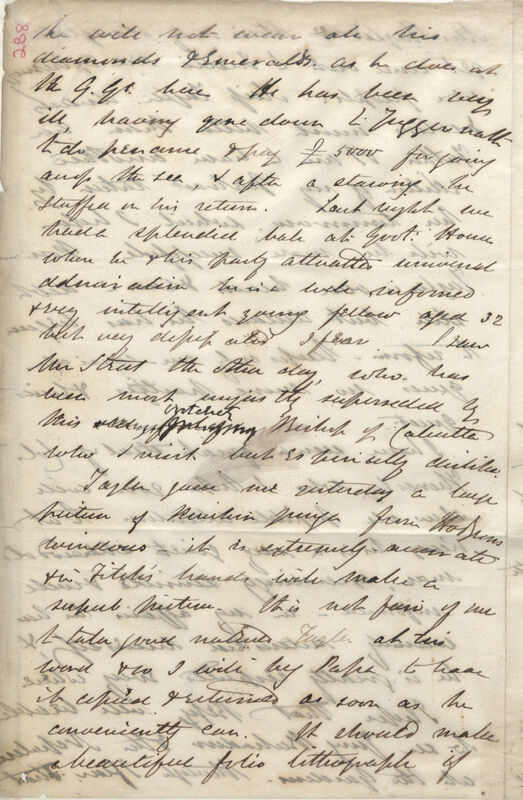 288
he will not wear all his
diamonds & Emeralds as he does at
the G. Gs. here. He has been very
ill, having gone down to Juggernath
to do penance & pay £ 5000 for going
across the sea, & after a starving he
stuffed on his return. Last night we
had a splendid ball at Govt. House
when he & his party attracted universal
admiration. He is a well informed
& very intelligent young fellow aged 32
but very dissipated I fear I saw
the other day, who has
been most unjustly superseded by
this wretched Bishop of Calcutta
who I visit but especially dislike
Taylor gave me yesterday a large
picture of from Hodgsons
windows - it is extremely accurate
& in Fitch's hands will make a
superb picture. It is not fair of me
to take good natured Taylor at his
word & so I will beg Papa to have
it copied & returned as soon as he
conveniently can. It should make
a beautiful folio lithograph if